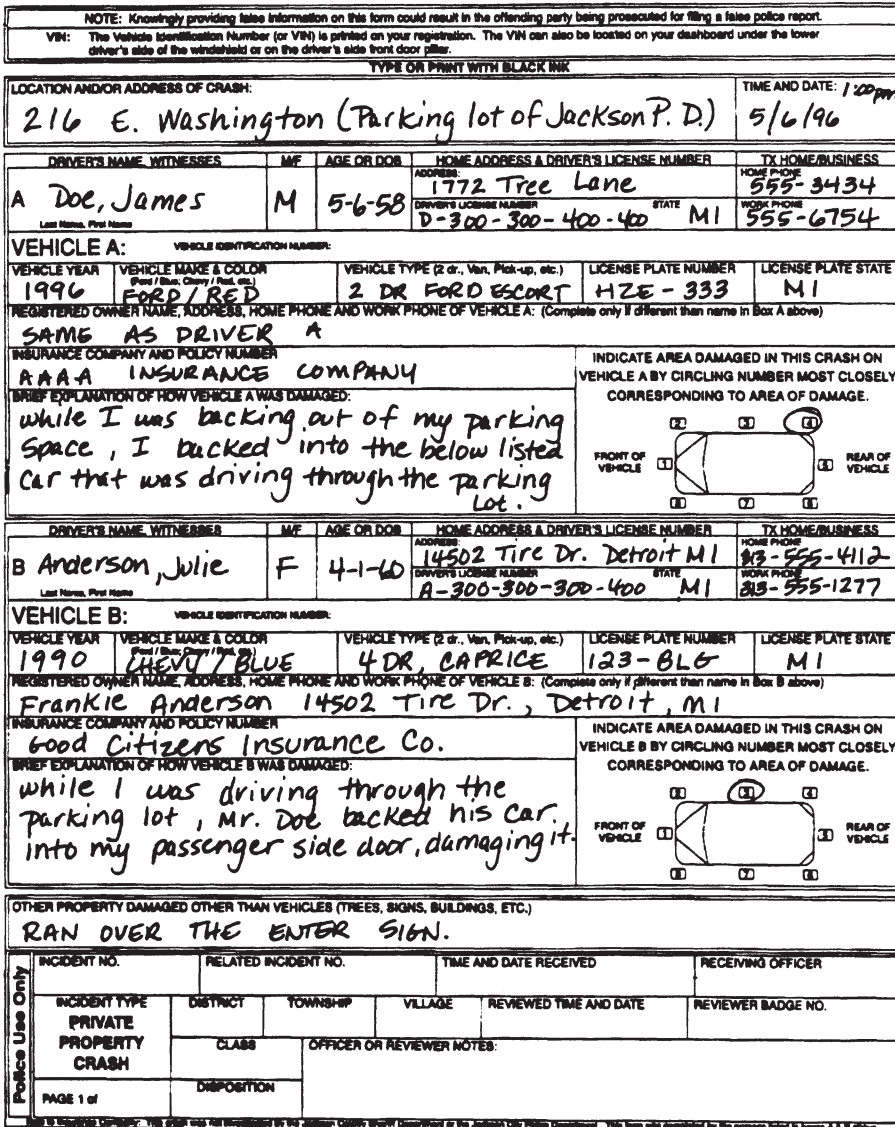 NOTE: Knowingly providing false information on this form could result in the offending party being prosecuted for filing a false police report.
VIN: The Vehicle Identification Number (or VIN) is printed on your registration. The VIN can also be located on your dashboard under the lower
driver's side of the windshield or on the driver's side front door pillar.
TYPE OR PRINT WITH BLACK INK
LOCATION AND/OR ADDRESS OF CRASH: TIME AND DATE: 1:00pm
216 E. Washington (Parking lot of Jackson P.D.) 5/6/96
DRIVER'S NAME, WITNESSES M/F AGE OR DOB HOME ADDRESS & DRIVER'S LICENSE NUMBER TX HOME/BUSINESS
A Doe, James M 5-6-58 ADDRESS: 1772 Tree Lane HOME PHONE 555-3434
Last Name, First Name DRIVER'S LICENSE NUMBER D-300-300-400-400 STATE MI WORK PHONE 555-6754
VEHICLE A: VEHICLE IDENTIFICATION NUMBER:
VEHICLE YEAR VEHICLE MAKE & COLOR (Ford / Blue; Chevy / Red, etc.) VEHICLE TYPE (2 dr., Van, Pick-up, etc.) LICENSE PLATE NUMBER LICENSE PLATE STATE
1996 FORD / RED 2 DR FORD ESCORT HZE-333 MI
REGISTERED OWNER NAME, ADDRESS, HOME PHONE AND WORK PHONE OF VEHICLE A: (Complete only if different than name in Box A above)
SAME AS DRIVER A
INSURANCE COMPANY AND POLICY NUMBER
AAAA INSURANCE COMPANY
BRIEF EXPLANATION OF HOW VEHICLE A WAS DAMAGED:
while I was backing out of my parking
space, I backed into the below listed
car that was driving through the parking
lot.
INDICATE AREA DAMAGED IN THIS CRASH ON
VEHICLE A BY CIRCLING NUMBER MOST CLOSELY
CORRESPONDING TO AREA OF DAMAGE.
2 3 4
FRONT OF VEHICLE 1 5 REAR OF VEHICLE
8 7 6
DRIVER'S NAME, WITNESSES M/F AGE OR DOB HOME ADDRESS & DRIVER'S LICENSE NUMBER TX HOME/BUSINESS
B Anderson, Julie F 4-1-60 ADDRESS: 14502 Tire Dr. Detroit MI HOME PHONE 313-555-4112
Last Name, First Name DRIVER'S LICENSE NUMBER A-300-300-300-400 STATE MI WORK PHONE 313-555-1277
VEHICLE B: VEHICLE IDENTIFICATION NUMBER:
VEHICLE YEAR VEHICLE MAKE & COLOR (Ford / Blue; Chevy / Red, etc.) VEHICLE TYPE (2 dr., Van, Pick-up, etc.) LICENSE PLATE NUMBER LICENSE PLATE STATE
1990 CHEVY / BLUE 4 DR, CAPRICE 123-BLG MI
REGISTERED OWNER NAME, ADDRESS, HOME PHONE AND WORK PHONE OF VEHICLE B: (Complete only if different than name in Box B above)
Frankie Anderson 14502 Tire Dr., Detroit, MI
INSURANCE COMPANY AND POLICY NUMBER
Good Citizens Insurance Co.
BRIEF EXPLANATION OF HOW VEHICLE B WAS DAMAGED:
while I was driving through the
parking lot, Mr. Doe backed his car
into my passenger side door, damaging it.
INDICATE AREA DAMAGED IN THIS CRASH ON
VEHICLE B BY CIRCLING NUMBER MOST CLOSELY
CORRESPONDING TO AREA OF DAMAGE.
2 3 4
FRONT OF VEHICLE 1 5 REAR OF VEHICLE
8 7 6
OTHER PROPERTY DAMAGED OTHER THAN VEHICLES (TREES, SIGNS, BUILDINGS, ETC.)
RAN OVER THE ENTER SIGN.
Police Use Only
INCIDENT NO. RELATED INCIDENT NO. TIME AND DATE RECEIVED RECEIVING OFFICER
INCIDENT TYPE DISTRICT TOWNSHIP VILLAGE REVIEWED TIME AND DATE REVIEWER BADGE NO.
PRIVATE
PROPERTY
CRASH
CLASS OFFICER OR REVIEWER NOTES:
DISPOSITION
PAGE 1 of